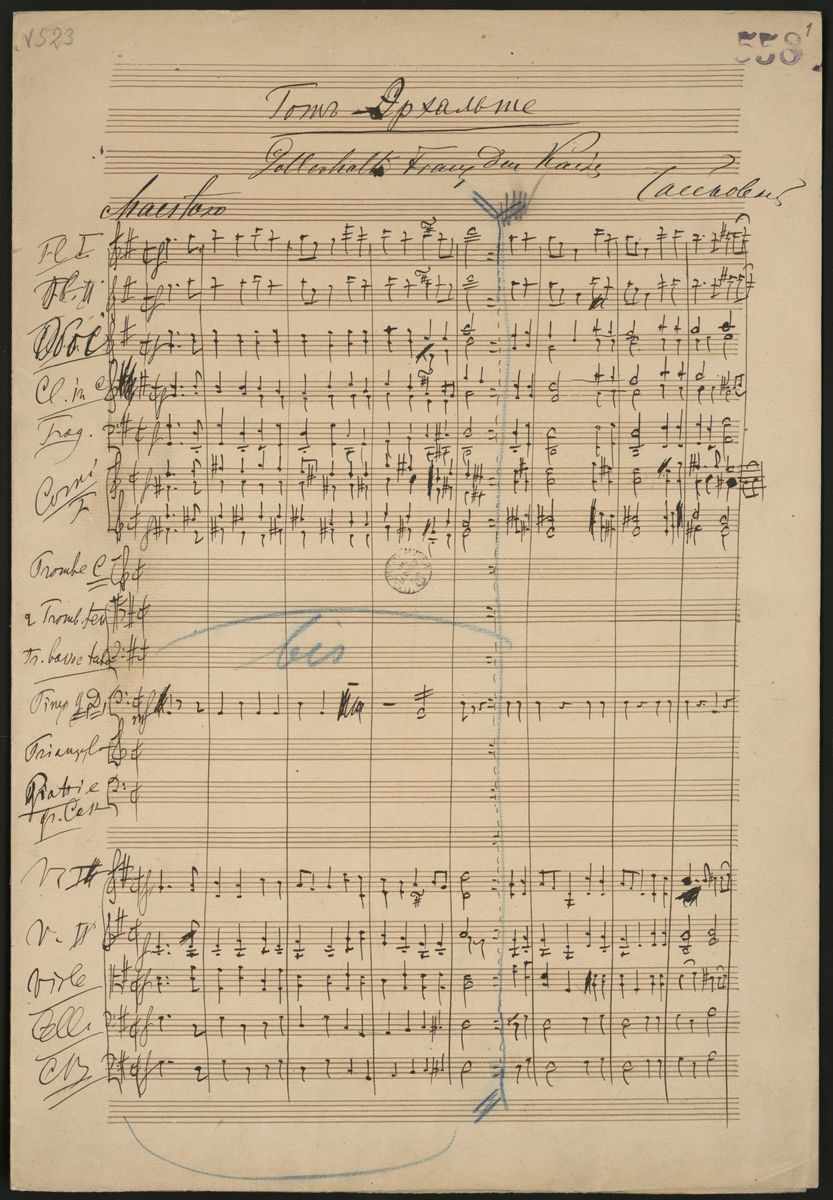 N 523
558
1
Готъ Эрхальте
Gott erhalte Franz den Kaiser
Maestoso
Fl I
Fl. II
Oboe
Cl. in C
Fag.
Corni
F
Trombe C
2 Tromb. ten
Tr. basso e tuba
Timp. G, D,
mf
bis
Triangolo
Piatti e
gr. Cassa
V. I
V. II
Viole
Celli
CB